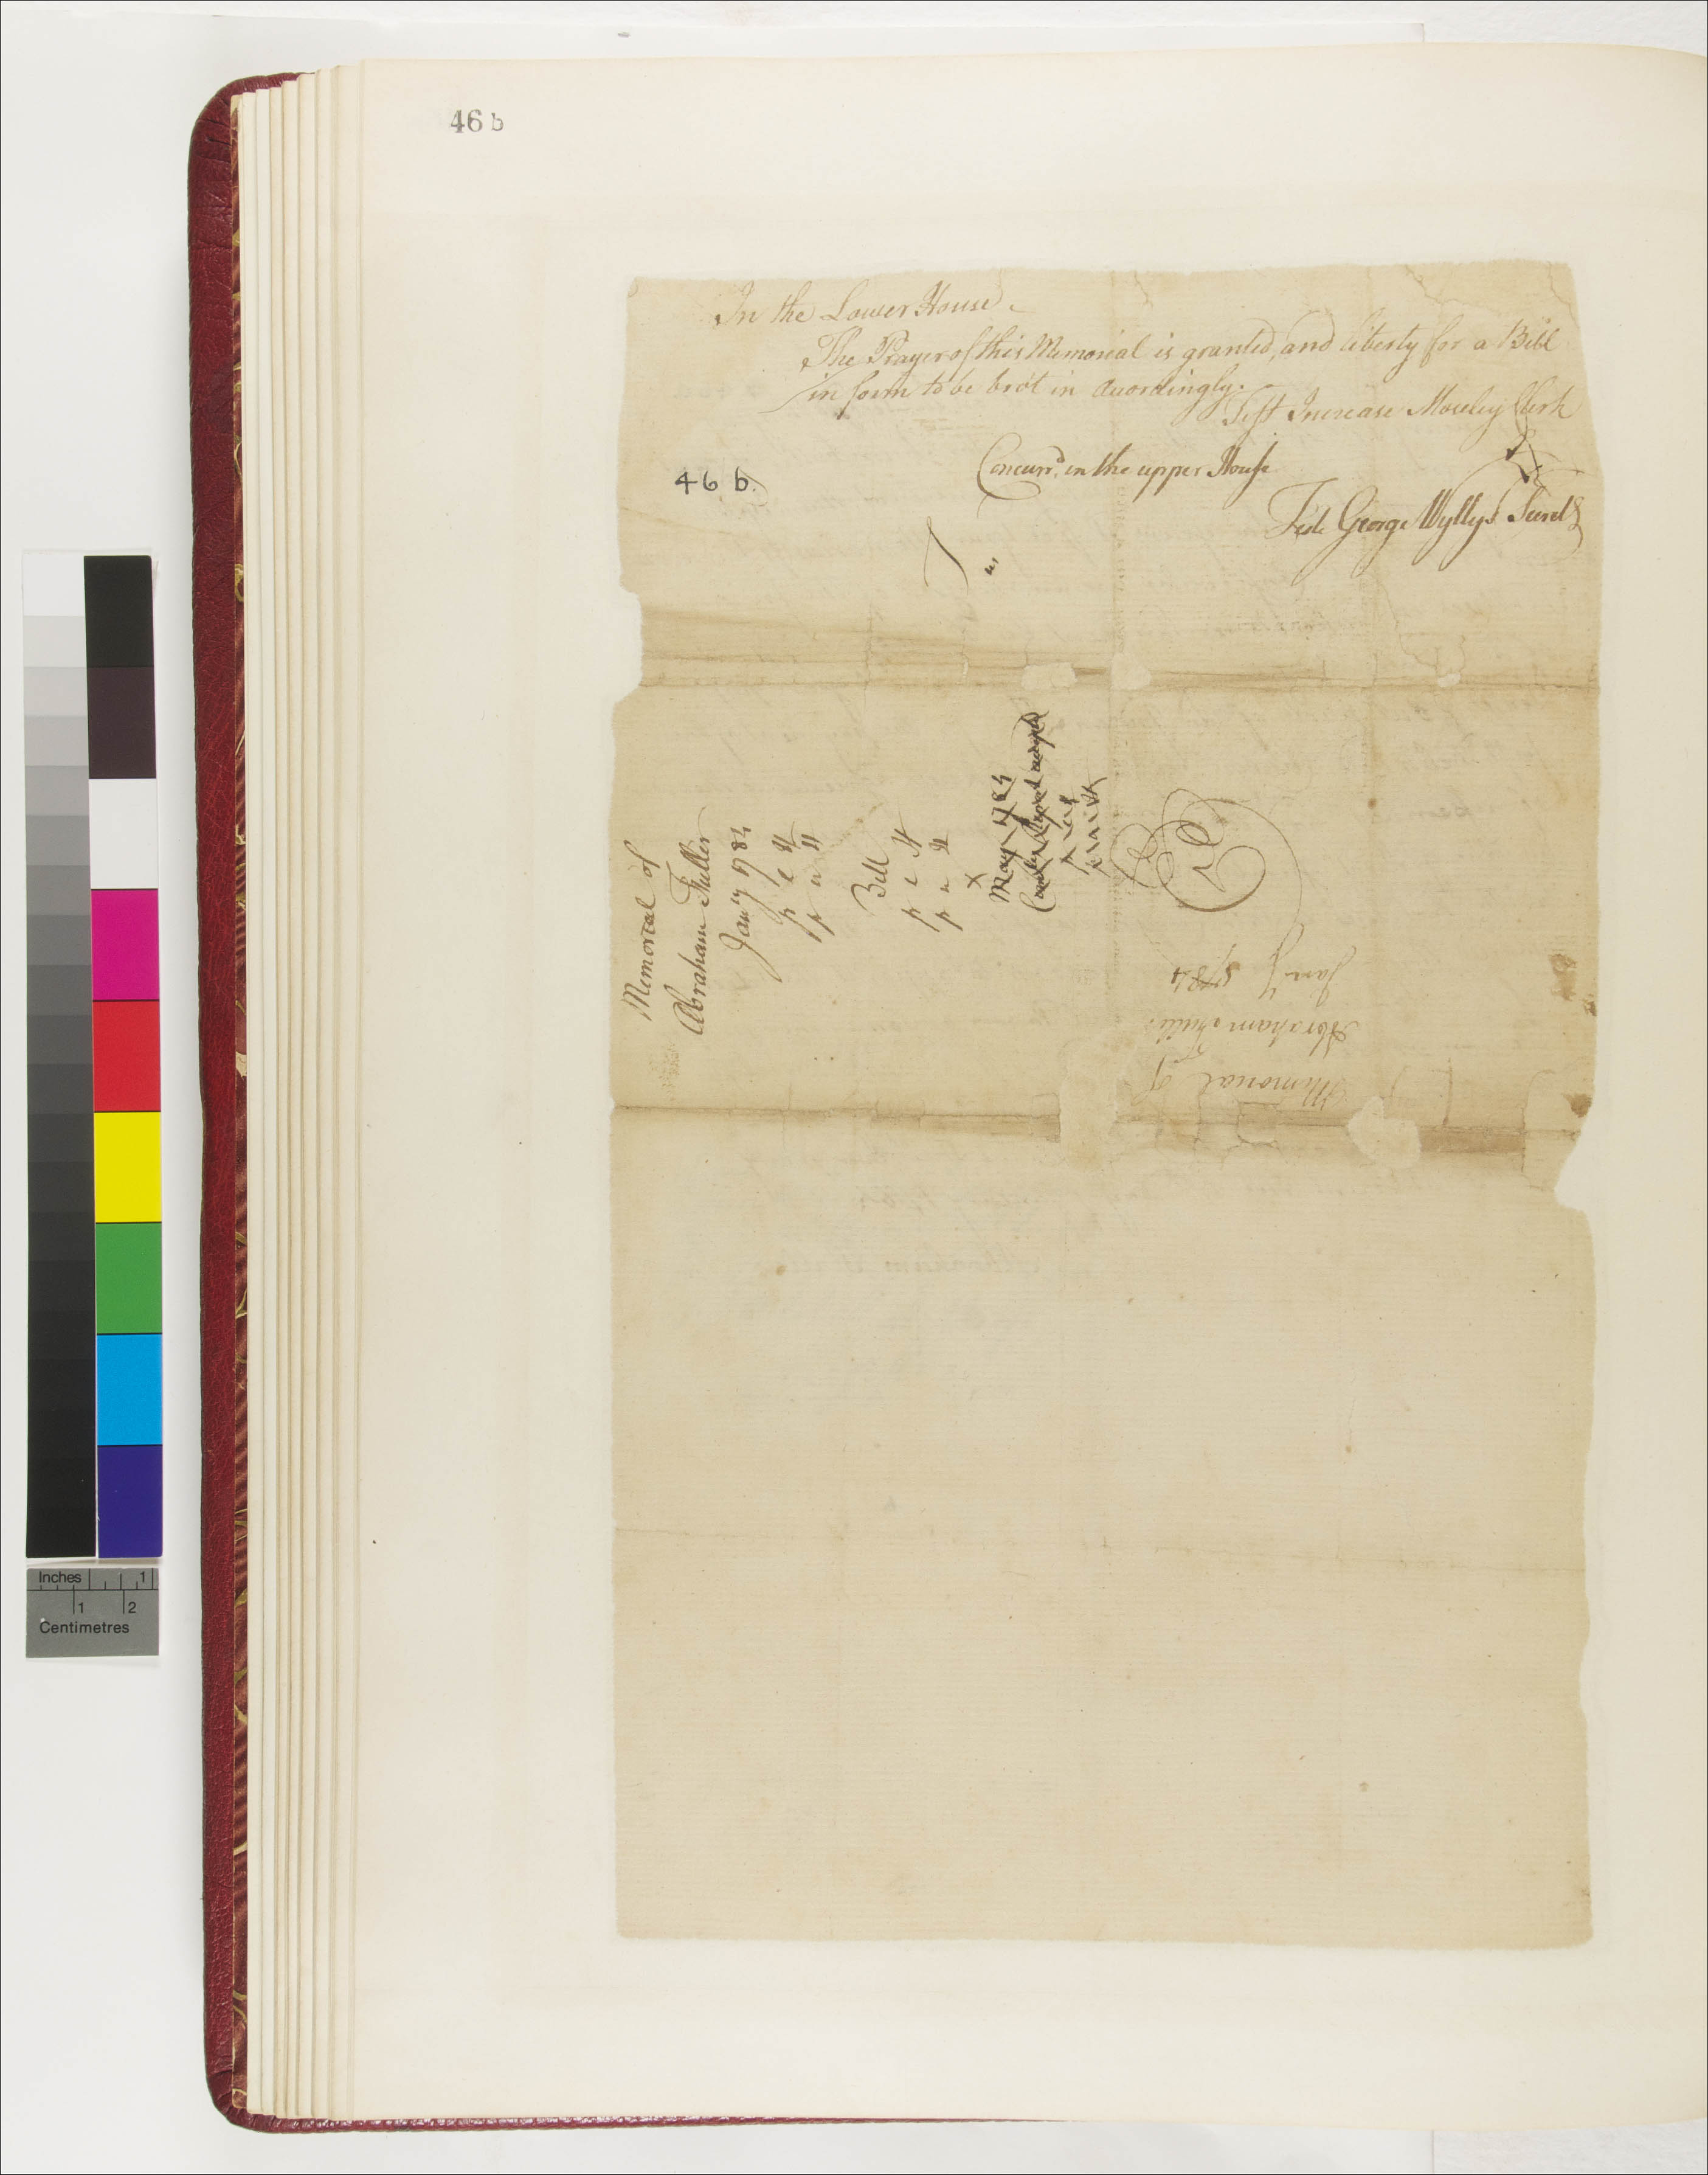 46 b
In the Lower House
The Prayer of this Memorial is granted, and liberty for a Bill
in form to be bro't in accordingly.
Test Increase Moseley Clerk
46 b.
Concurrd. in the upper House
Test George Wyllys Secrety
Memorial of
Abraham Fuller
Jany 1784
p l H
p u H
Bill
p l H
p u H
x
May 1784
Memorial of
Abraham Fuller
Jany 1784
Inches 1
1 2
Centimetres